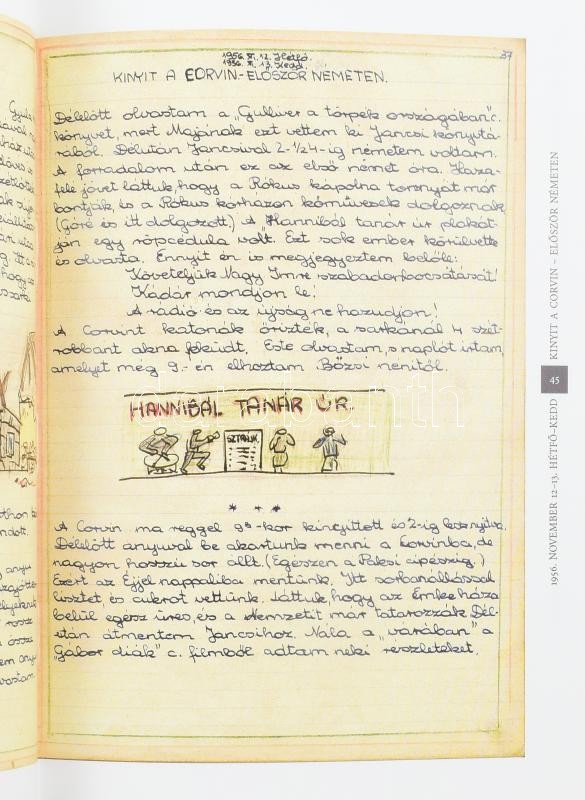 1956. XI. 12. Hétfő.
1956. XI. 13. Kedd.
37
KINYIT A CORVIN - ELŐSZÖR NÉMETEN.
Délelőtt olvastam a „Gulliver a törpék országában” c.
könyvet, mert Majának ezt vettem ki Jancsi könyvtá-
rából. Délután Jancsival 2-1/24-ig németem voltam.
A forradalom után ez az első német óra. Haza-
felé jövet láttuk, hogy a Rókus kápolna tornyát már
bontják, és a Rókus kórházon kőművesek dolgoznak
(Góré és itt dolgozott.) A „Hannibál tanár úr plakát-
ján egy röpcédula volt. Ezt sok ember körülvette
és olvasta. Ennyit én is megjegyeztem belőle:
Követeljük Nagy Imre szabadonbocsátását!
Kádár mondjon le!
A rádió és az újság ne hazudjon!
A Corvint katonák őrizték, a sarkánál 4 szét-
robbant akna feküdt. Este olvastam, s naplót írtam,
amelyet még 9.-én elhoztam Bözsi nénitől.
HANNIBÁL TANÁR ÚR.
SZTRÁJK
* + *
A Corvin ma reggel 9h-kor kinyitott és 2-ig lesz nyitva.
Délelőtt anyuval be akartunk menni a Corvinba, de
nagyon hosszú sor állt. (Egészen a Páksi cipészig.)
Ezért az Éjjel nappaliba mentünk. Itt sorbanállással
lisztet és cukrot vettünk. Láttuk, hogy az Emke háza
belül egész üres, és a Nemzetit már tatarozzák. Dél-
után átmentem Jancsihoz. Nála a „várában” a
„Gábor diák” c. filmből adtam neki részleteket.
1956. NOVEMBER 12–13. HÉTFŐ–KEDD
45
KINYIT A CORVIN – ELŐSZÖR NÉMETEN